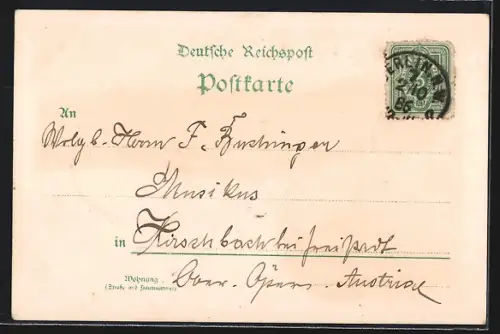 Deutsche Reichspost
Postkarte
An
Wolg b. Herrn F. Bushinger
Musikus
in Hirschbach bei Freistadt
Wohnung Ober. Austria
(Straße und Hausnummer)
BERLIN N.W.
7
2/10
86